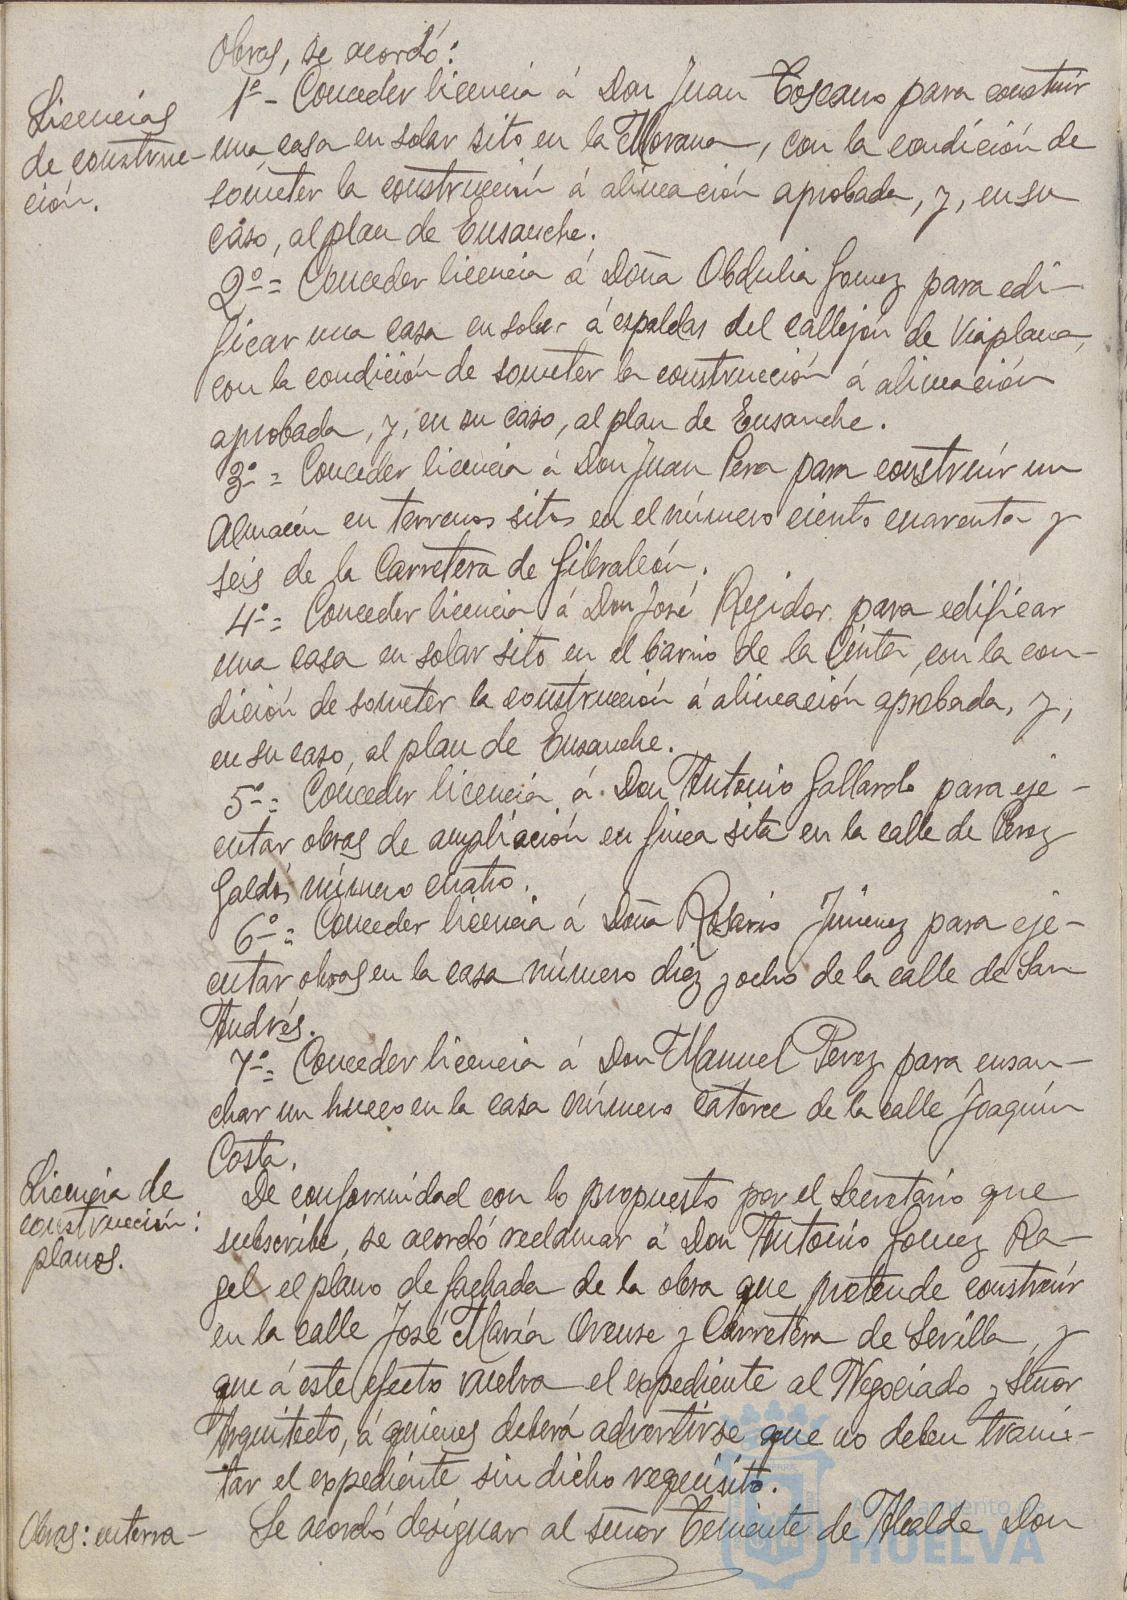 Obras, se acordó:
Licencias de construc-
ción.
1º- Conceder licencia á Don Juan Toscano para construir
una casa en solar sito en la Morana, con la condición de
someter la construcción á alineación aprobada, y, en su
caso, al plan de Ensanche.
2º= Conceder licencia á Doña Obdulia Gomez para edi-
ficar una casa en solar á espaldas del callejón de Viaplana,
con la condición de someter la construcción á alineación
aprobada, y, en su caso, al plan de Ensanche.
3º= Conceder licencia á Don Juan Pera para construir un
Almacén en terrenos sitos en el número ciento cuarenta y
seis de la Carretera de Gibraleón.
4º= Conceder licencia á Don José Regidor para edificar
una casa en solar sito en el barrio de la Cinta, con la con-
dición de someter la construcción á alineación aprobada, y,
en su caso, al plan de Ensanche.
5º= Conceder licencia á Don Antonio Gallardo para eje-
cutar obras de ampliación en finca sita en la calle de Perez
Galdós número cuatro.
6º= Conceder licencia á Doña Rosario Jimenez para eje-
cutar obras en la casa número diez y ocho de la calle de San
Andrés.
7º= Conceder licencia á Don Manuel Perez para ensan-
char un hueco en la casa número catorce de la calle Joaquín
Costa.
Licencia de
construcción:
planos.
De conformidad con lo propuesto por el Secretario que
subscribe, se acordó reclamar á Don Antonio Gomez Ra-
gel el plano de fachada de la obra que pretende construir
en la calle José María Orense y Carretera de Sevilla, y
que á este efecto vuelva el expediente al Negociado y Señor
Arquitecto, á quienes deberá advertirse que no deben trami-
tar el expediente sin dicho requisito.
Obras: enterra-
Se acordó designar al señor Teniente de Alcalde Don
Ayuntamiento de
HUELVA